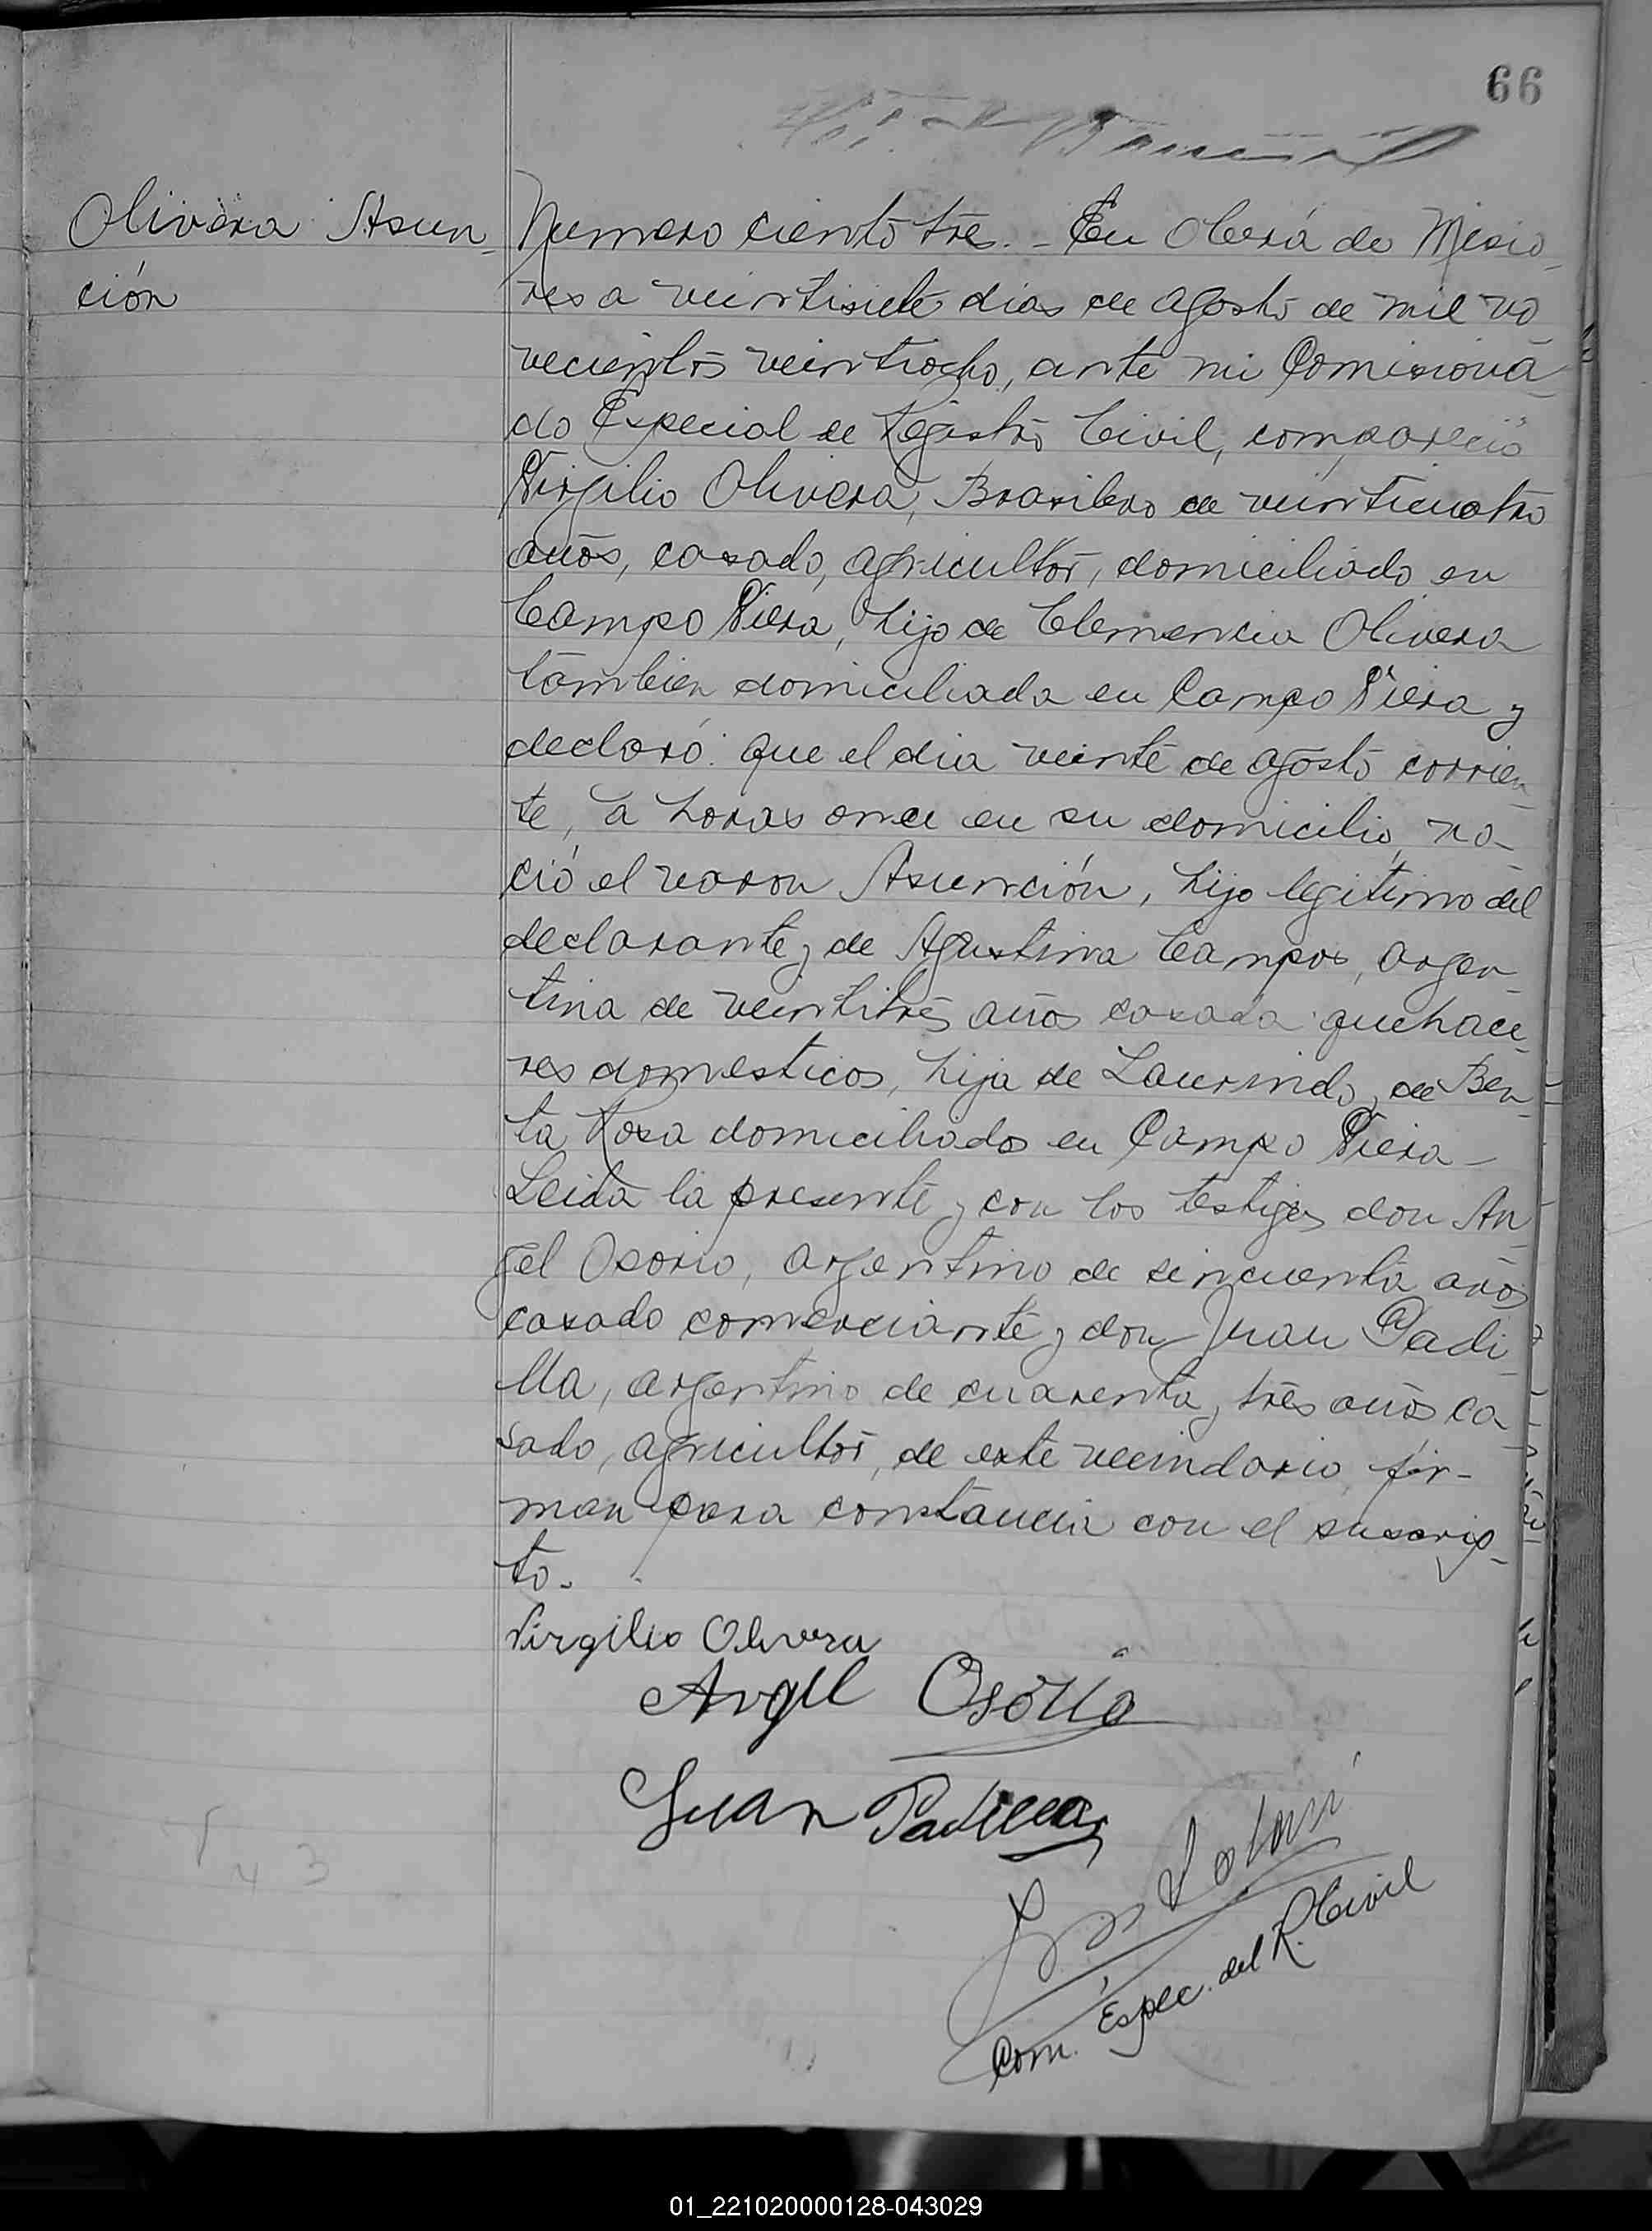 66
Olivera Asun-
ción
Numero ciento tres.- En Oberá de Misio-
nes a veintisiete dias de agosto de mil no
vecientos veintiocho, ante mi Comisiona-
do Especial de Registro Civil, compareció
Virgilio Olivera, Brasilero de veinticuatro
años, casado, agricultor, domiciliado en
Campo Viera, hijo de Clemencia Olivera
tambien domiciliada en Campo Viera y
declaró: que el dia veinte de agosto corrien-
te, a horas once en su domicilio, na-
ció el varon Asunción, hijo legitimo del
declarante y de Agustina Campos, argen-
tina de veintitrés años casada quehace-
res domesticos, hija de Laurindo y de Ben-
ta Rosa domiciliados en Campo Viera-
Leida la presente y con los testigos don An-
gel Osorio, argentino de sincuenta años
casado comerciante y don Juan Padi
lla, argentino de cuarenta y tres años ca-
sado, agricultor, de este vecindario, fir-
man para constancia con el suscrip-
to.-
Virgilio Olivera
Angel Osorio
Juan Padilla
Com. Espec. del R. Civil
43
01_221020000128-043029